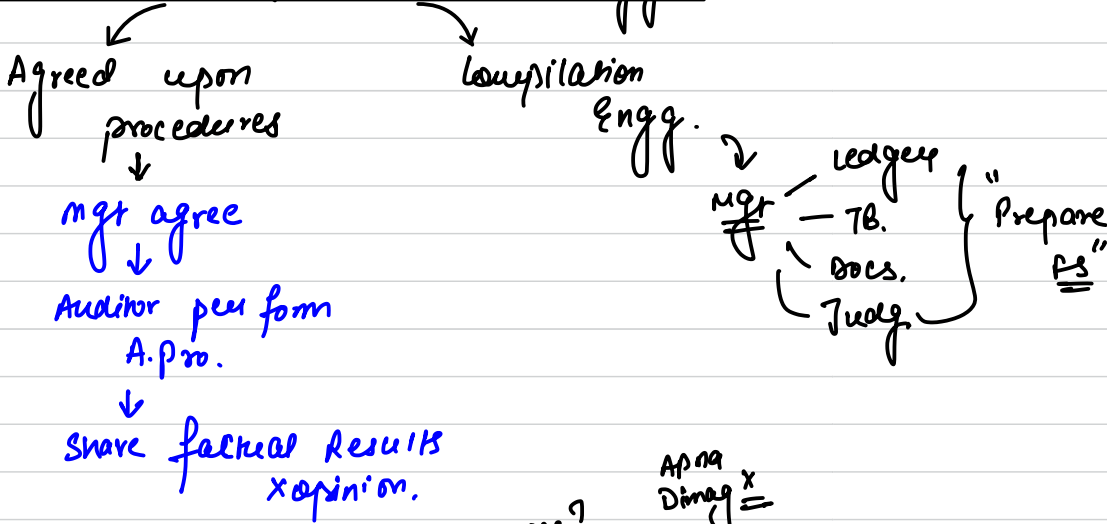 Agreed upon
procedures
mgt agree
Auditor perform
A.pro.
Share factual Results
x opinion.
Compilation
Engg.
Mgt
Ledger
TB.
Docs.
Judg.
"Prepare
FS"
Apna
Dimag x